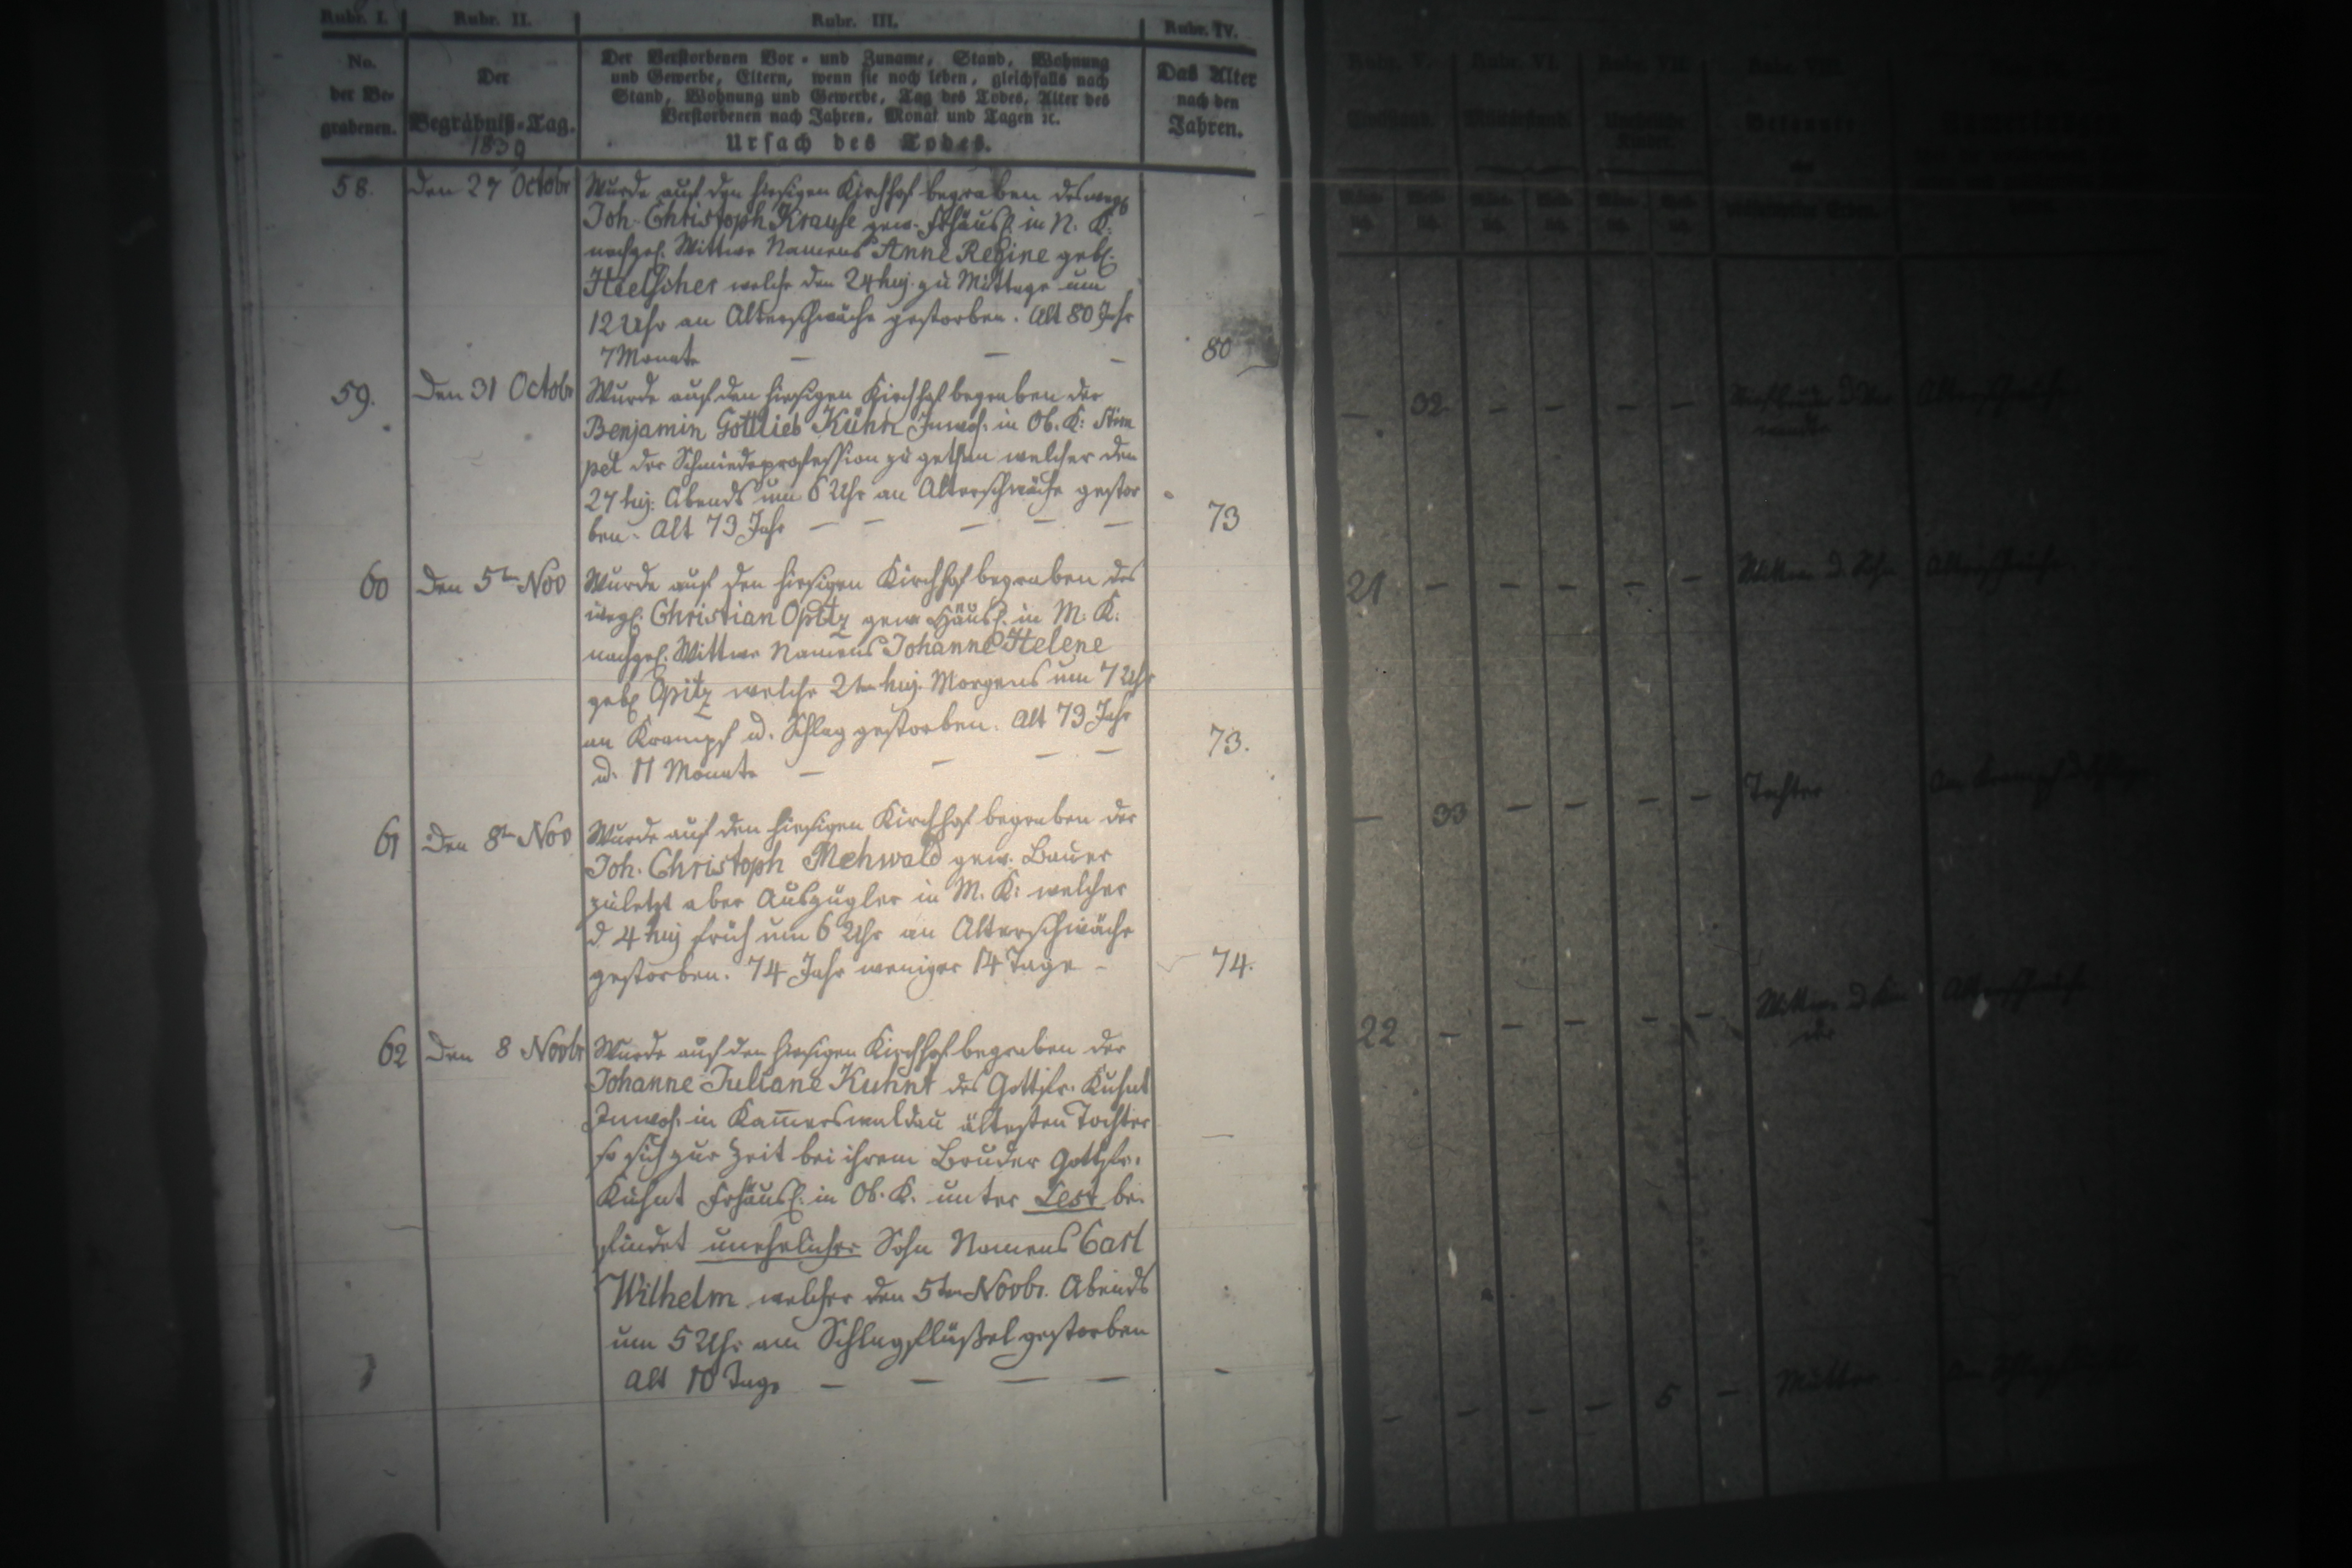 Rubr. I. Rubr. II. Rubr. III. Rubr. IV.
No.
der Be-
grabenen.
Der
Begräbniß-Tag.
1839
Der Verstorbenen Vor- und Zuname, Stand, Wohnung
und Gewerbe, Eltern, wenn sie noch leben, gleichfalls nach
Stand, Wohnung und Gewerbe, Tag des Todes, Alter des
Verstorbenen nach Jahren, Monat und Tagen ꝛc.
Ursach des Todes.
Das Alter
nach den
Jahren.
58. den 27 Octobr Wurde auf den hiesigen Kirchhof begraben des weyl.
Joh. Christoph Krause gew. Frhäusl. in N. K:
nachgel. Wittwe Namens Anne Regine geb.
Hielscher welche den 24 huj. zu Mittage um
12 Uhr an Alterschwäche gestorben. Alt 80 Jahr
7 Monate — — — 80
59. Den 31 Octobr Wurde auf den hiesigen Kirchhof begraben der
Benjamin Gottlieb Kühn Inwoh. in Ob. K:
der Schmiedeprofession zu gethan welcher den
27 huj. Abends um 6 Uhr an Alterschwäche gestor
ben. Alt 73 Jahr — — — — — 73
60 Den 5ten Nov Wurde auf den hiesigen Kirchhof begraben des
weyl. Christian Opitz gew. Häusl. in M. K:
nachgel. Wittwe Namens Johanne Helene
geb. Opitz welche 2ten huj. Morgens um 7 Uhr
an Krampf u. Schlag gestorben. Alt 73 Jahr
u. 11 Monate — — — — 73.
61 Den 8ten Nov Wurde auf den hiesigen Kirchhof begraben der
Joh. Christoph Mehwald gew. Bauer
zuletzt aber Auszügler in M. K: welcher
d 4 huj früh um 6 Uhr an Alterschwäche
gestorben. 74 Jahr weniger 14 Tage - 74.
62 Den 8 Novbr Wurde auf den hiesigen Kirchhof begraben der
Johanne Juliane Kuhnt des Gottfr. Kuhnt
Inwoh. in Kam̅erswaldau ältesten Tochter
so sich zur Zeit bei ihrem Bruder Gottfr.
Kuhnt Frhäusl. in Ob. K. unter be-
findet unehelicher Sohn Namens Carl
Wilhelm welcher den 5ten Novbr. Abends
um 5 Uhr am Schlagflüßel gestorben
Alt 10 Tage — — — — -
— 32 — — — —
21 — — — — — Alterschwäche
— 33 — — — — Tochter
22 — — — — — Alterschwäche
— — — — 5 — Mutter